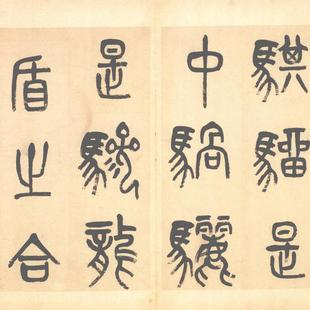 騏騮是
中騧驪
是驂龍
盾之合